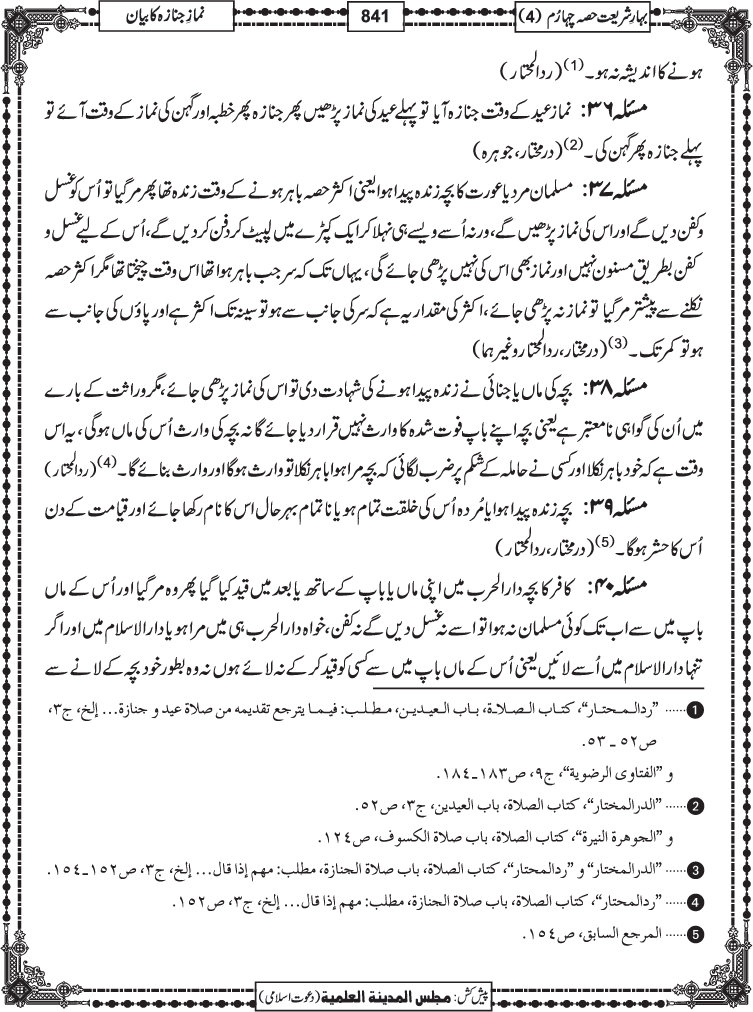 بہارِشریعت حصہ چہارم (4)
841
نمازِ جنازہ کا بیان
ہونے کا اندیشہ نہ ہو۔(1) (ردالمحتار)
مسئلہ ۳۶: نماز عید کے وقت جنازہ آیا تو پہلے عید کی نماز پڑھیں پھر جنازہ پھر خطبہ اور گہن کی نماز کے وقت آئے تو
پہلے جنازہ پھر گہن کی۔(2) (درمختار، جوہرہ)
مسئلہ ۳۷: مسلمان مرد یا عورت کا بچہ زندہ پیدا ہوا یعنی اکثر حصہ باہر ہونے کے وقت زندہ تھا پھر مر گیا تو اُس کو غسل
و کفن دیں گے اور اس کی نماز پڑھیں گے، ورنہ اُسے ویسے ہی نہلا کر ایک کپڑے میں لپیٹ کر دفن کر دیں گے، اُس کے لیے غسل و
کفن بطریق مسنون نہیں اور نماز بھی اس کی نہیں پڑھی جائے گی، یہاں تک کہ سر جب باہر ہوا تھا اس وقت چیختا تھا مگر اکثر حصہ
نکلنے سے پیشتر مر گیا تو نماز نہ پڑھی جائے، اکثر کی مقدار یہ ہے کہ سر کی جانب سے ہو تو سینہ تک اکثر ہے اور پاؤں کی جانب سے
ہو تو کمر تک۔(3) (درمختار، ردالمحتار وغیرہما)
مسئلہ ۳۸: بچہ کی ماں یا جنائی نے زندہ پیدا ہونے کی شہادت دی تو اس کی نماز پڑھی جائے، مگر وراثت کے بارے
میں اُن کی گواہی نامعتبر ہے یعنی بچہ اپنے باپ فوت شدہ کا وارث نہیں قرار دیا جائے گا نہ بچہ کی وارث اُس کی ماں ہوگی، یہ اس
وقت ہے کہ خود باہر نکلا اور کسی نے حاملہ کے شکم پر ضرب لگائی کہ بچہ مرا ہوا باہر نکلا تو وارث ہوگا اور وارث بنائے گا۔(4) (ردالمحتار)
مسئلہ ۳۹: بچہ زندہ پیدا ہوا یا مُردہ اُس کی خلقت تمام ہو یا نا تمام بہرحال اس کا نام رکھا جائے اور قیامت کے دن
اُس کا حشر ہوگا۔(5) (درمختار، ردالمحتار)
مسئلہ ۴۰: کافر کا بچہ دارالحرب میں اپنی ماں یا باپ کے ساتھ یا بعد میں قید کیا گیا پھر وہ مر گیا اور اُس کے ماں
باپ میں سے اب تک کوئی مسلمان نہ ہوا تو اسے نہ غسل دیں گے نہ کفن، خواہ دارالحرب ہی میں مرا ہو یا دارالاسلام میں اور اگر
تنہا دارالاسلام میں اُسے لائیں یعنی اُس کے ماں باپ میں سے کسی کو قید کر کے نہ لائے ہوں نہ وہ بطور خود بچہ کے لانے سے
1 ...... "ردالـمـحتـار"، کتـاب الـصـلاة، بـاب الـعيـديـن، مـطـلـب: فيـمـا يـترجع تقديمه من صلاة عيد و جنازة... إلخ، ج۳،
ص٥٢ ـ ٥٣.
و "الفتاوى الرضوية"، ج۹، ص١٨٣ـ١٨٤.
2 ...... "الدرالمختار"، كتاب الصلاة، باب العيدين، ج۳، ص٥٢.
و "الجوهرة النيرة"، كتاب الصلاة، باب صلاة الكسوف، ص١٢٤.
3 ...... "الدرالمختار" و "ردالمحتار"، كتاب الصلاة، باب صلاة الجنازة، مطلب: مهم إذا قال... إلخ، ج۳، ص١٥٢ـ١٥٤.
4 ...... "ردالمحتار"، كتاب الصلاة، باب صلاة الجنازة، مطلب: مهم إذا قال... إلخ، ج۳، ص١٥٢.
5 ...... المرجع السابق، ص١٥٤.
پیش کش: مجلس المدینة العلمیة (دعوتِ اسلامی)